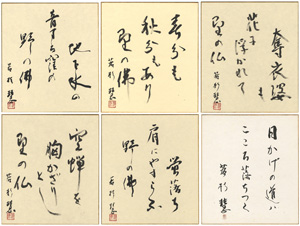 奪衣婆も
花に浮かれて
野の仏
若杉慧
春分も
秋分もあり
野の佛
若杉慧
地下水の
野の佛
若杉慧
日かげの道は
こころ落ちつく
若杉慧
肩にやすらふ
野の佛
若杉慧
空蝉を
胸かざりとし
野の仏
若杉慧